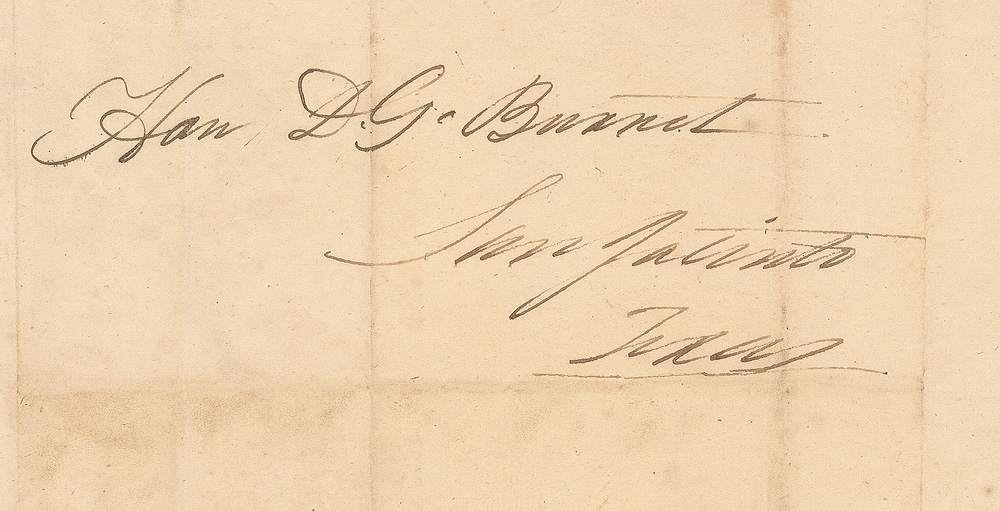 Hon D. G. Burnet
San Jacinto
Texas